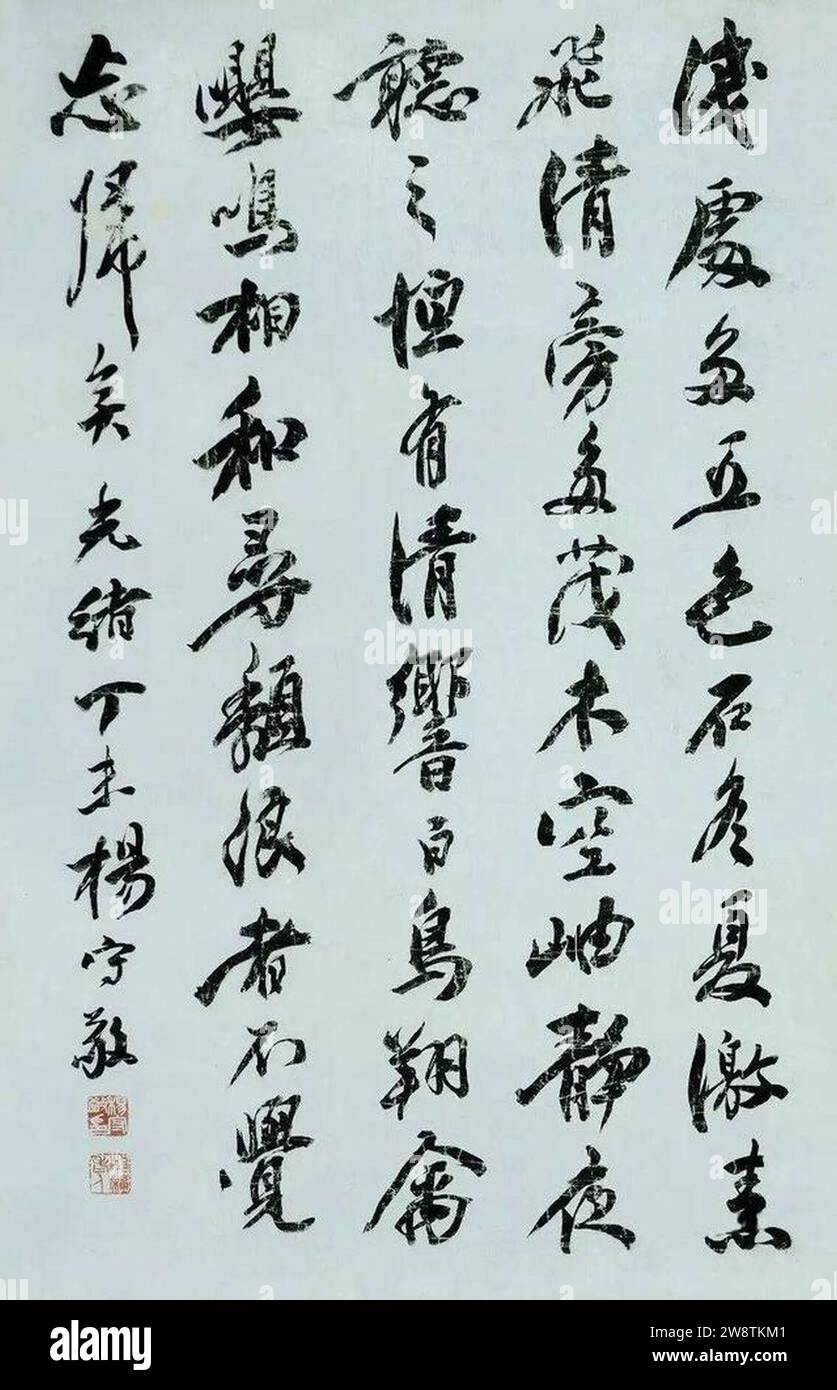 淺處多五色石冬夏激素
飛清旁多茂木空岫靜夜
聽之恒有清響百鳥翔禽
嚶鳴相和尋頹浪者不覺
忘歸矣光緒丁未楊守敬
alamy
alamy
Image ID: 2W8TKM1
www.alamy.com